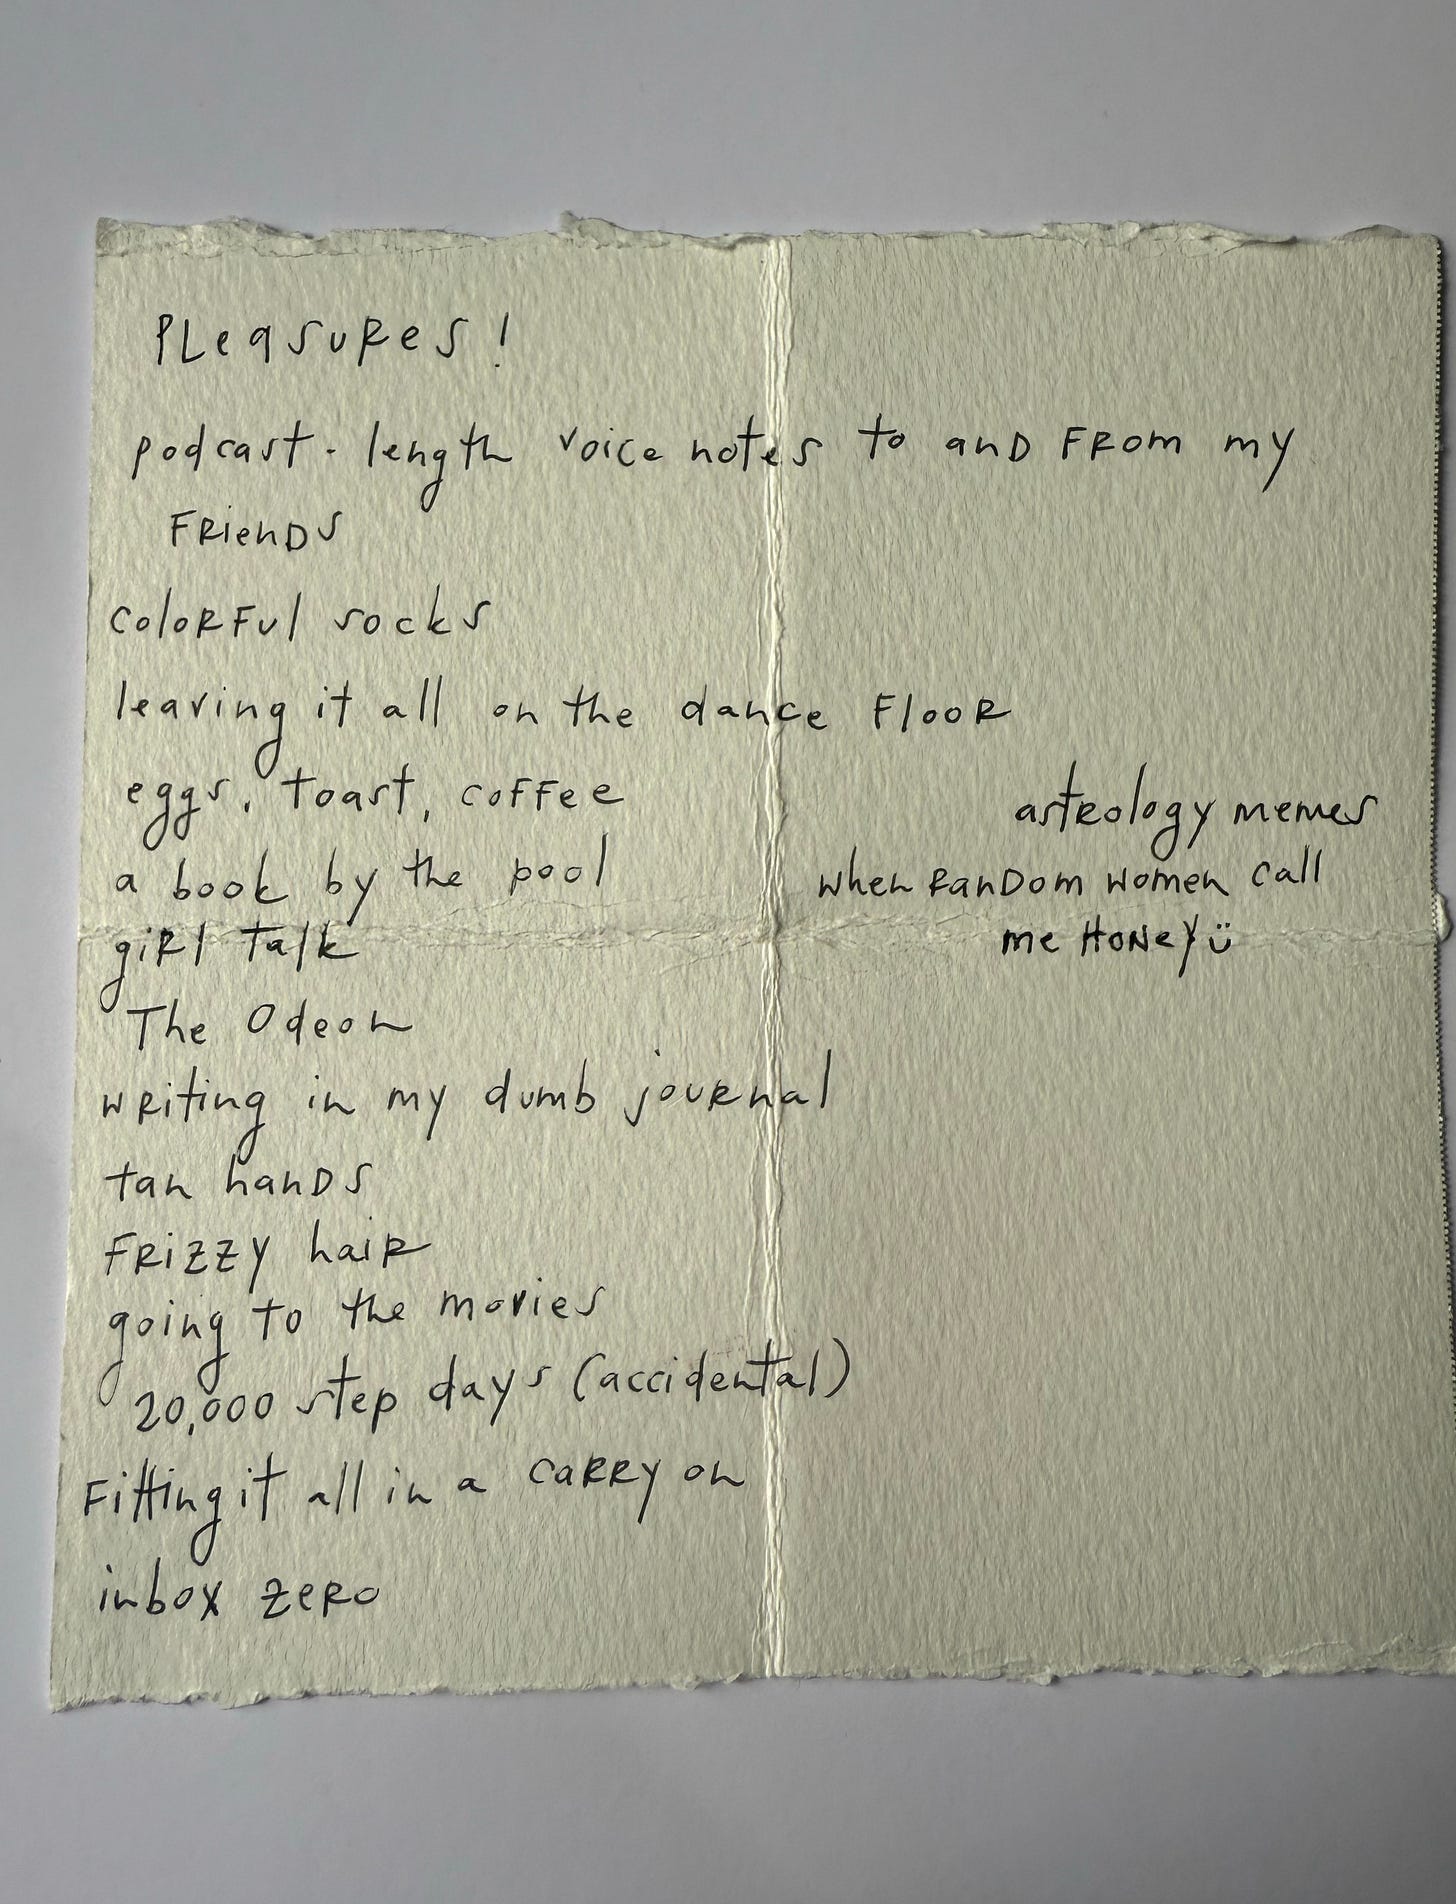 PLeasuRes!
podcast-length voice notes to anD FRom my
FRienDs
coloRFul socks
leaving it all on the dance FlooR
eggs, toast, coFFee
a book by the pool
giRl talk
The Odeon
wRiting in my dumb jouRnal
tan hanDs
FRizzy haiR
going to the movies
20,000 step days (accidental)
Fitting it all in a caRRy on
inbox zeRo
astRology memes
when RanDom women call
me HoNey ü